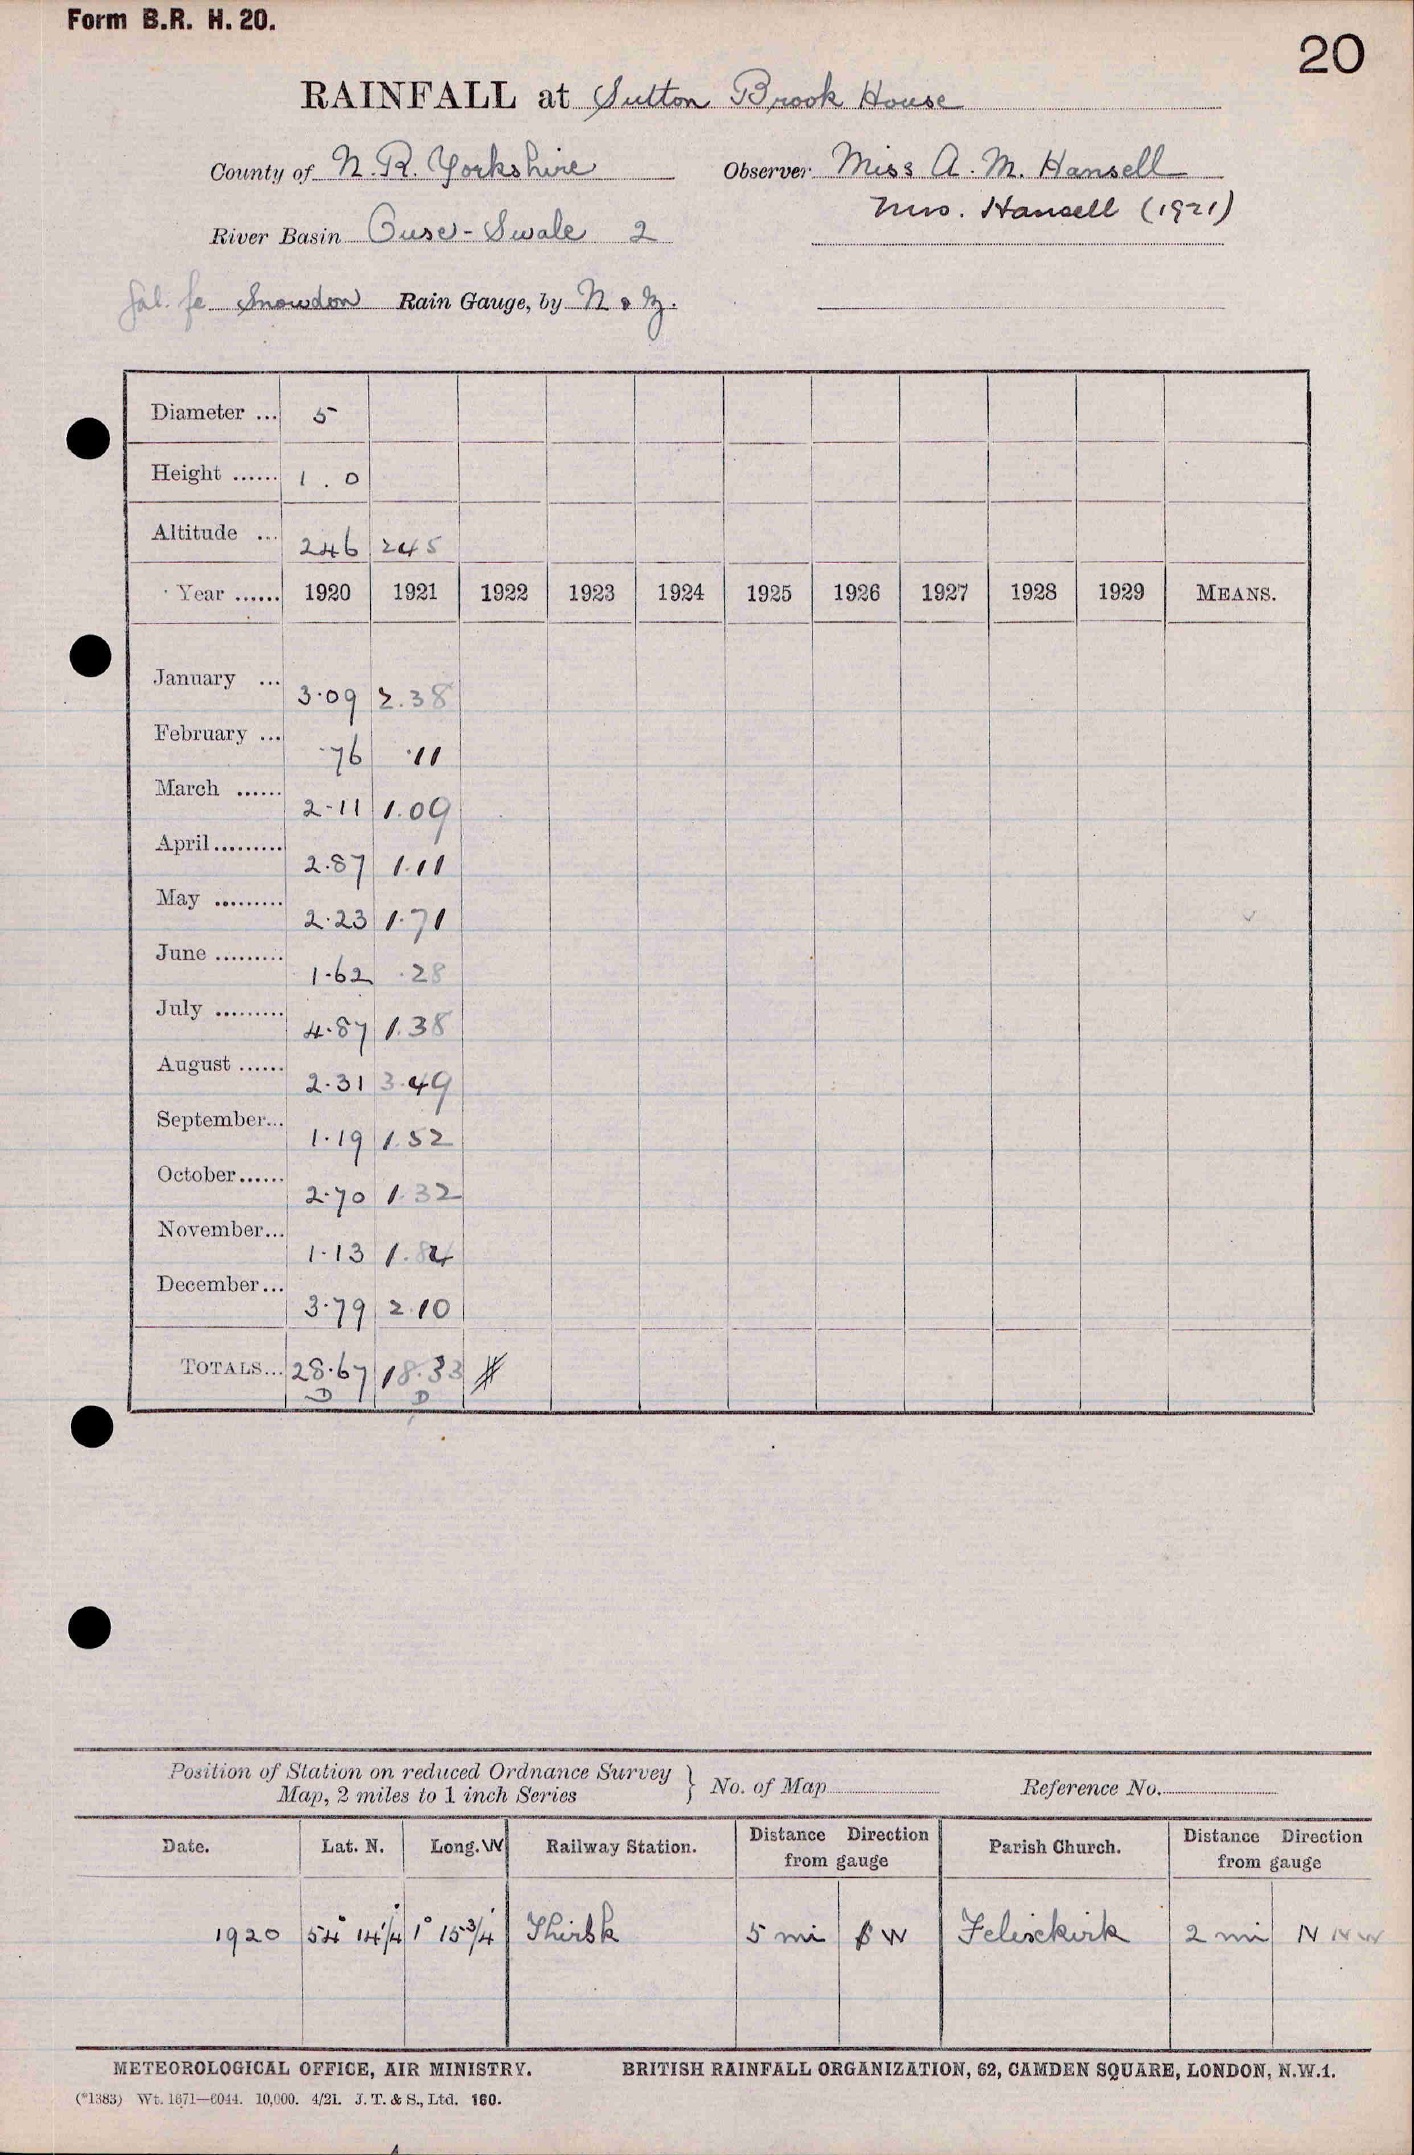 Form B.R. H. 20.
20
RAINFALL at Sutton Brook House
County of N.R. Yorkshire Observer Miss A. M. Hansell
Mrs. Hansell (1921)
River Basin Ouse-Swale 2
Snowdon Rain Gauge, by N & Z.
Diameter ... 5
Height ...... 1.0
Altitude ... 246 245
Year ...... 1920 1921 1922 1923 1924 1925 1926 1927 1928 1929 MEANS.
January ... 3.09 2.38
February ... .76 .11
March ...... 2.11 1.09
April ......... 2.87 1.11
May ......... 2.23 1.71
June ......... 1.62 .28
July ......... 4.87 1.38
August ...... 2.31 3.49
September... 1.19 1.52
October...... 2.70 1.32
November... 1.13 1.84
December... 3.79 2.10
TOTALS... 28.67 18.33
D D
Position of Station on reduced Ordnance Survey
Map, 2 miles to 1 inch Series } No. of Map Reference No.
Date. Lat. N. Long. W Railway Station. Distance Direction from gauge Parish Church. Distance Direction from gauge
1920 54° 14¼' 1° 15¾' Thirsk 5 mi W Feliskirk 2 mi N N W
METEOROLOGICAL OFFICE, AIR MINISTRY. BRITISH RAINFALL ORGANIZATION, 62, CAMDEN SQUARE, LONDON, N.W.1.
(*1383) Wt. 1671—6044. 10,000. 4/21. J. T. & S., Ltd. 160.